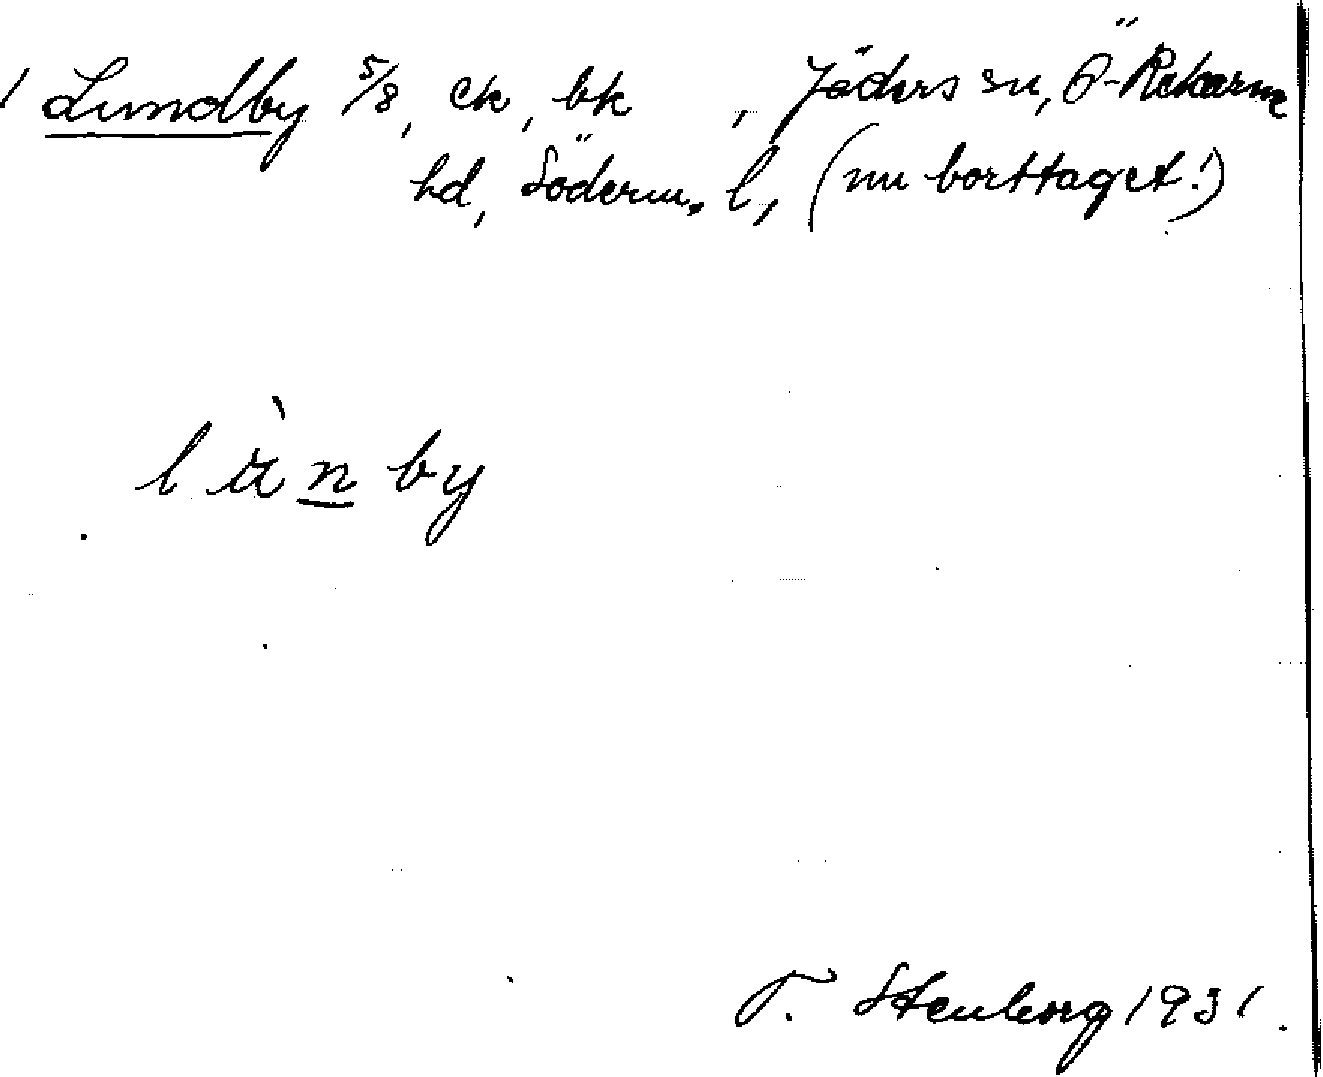 Lundby 5/8, ck, bk , Jäders sn, Ö-Rekarne
hd, Söderm. l, (nu borttaget!)
l ù n by
T. Stenborg 1931.